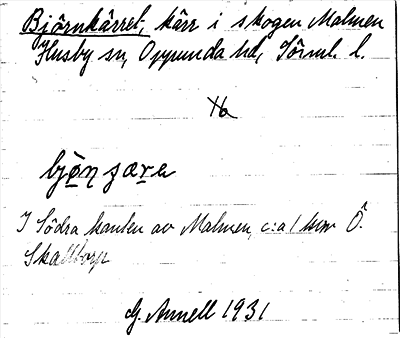 Björnkärret, kärr i skogen Malmen
Husby sn, Oppunda hd, Sörml. l.
bjö̱ŋ ʒæṟa
I Södra kanten av Malmen, c:a 1 km Ö.
Skalltorp
G. Annell 1931